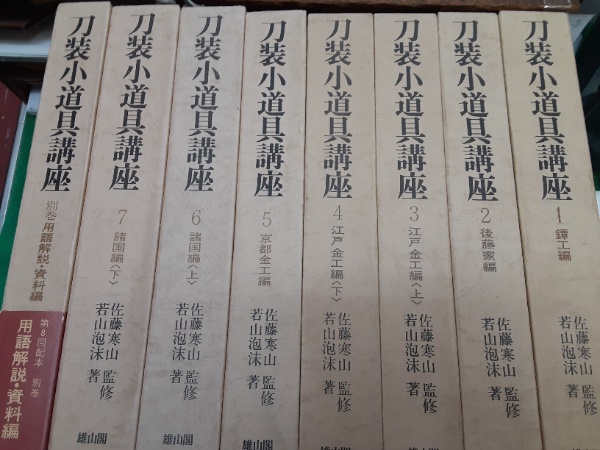 刀装小道具講座
1
鐔工編
佐藤寒山 監修
若山泡沫 著
刀装小道具講座
2
後藤家編
佐藤寒山 監修
若山泡沫 著
雄山閣
刀装小道具講座
3
江戸金工編〈上〉
佐藤寒山 監修
若山泡沫 著
雄山閣
刀装小道具講座
4
江戸金工編〈下〉
佐藤寒山 監修
若山泡沫 著
雄山閣
刀装小道具講座
5
京都金工編
佐藤寒山 監修
若山泡沫 著
雄山閣
刀装小道具講座
6
諸国編〈上〉
佐藤寒山 監修
若山泡沫 著
雄山閣
刀装小道具講座
7
諸国編〈下〉
佐藤寒山 監修
若山泡沫 著
雄山閣
刀装小道具講座
別巻 用語解説・資料編
第8回配本 別巻
用語解説・資料編